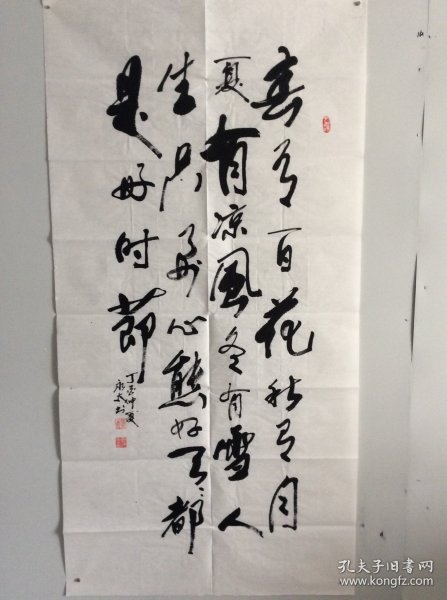 春有百花秋有月
夏有凉風冬有雪人
生只要心態好天天都
是好时節
丁酉仲夏
孔夫子旧书网
www.kongfz.com